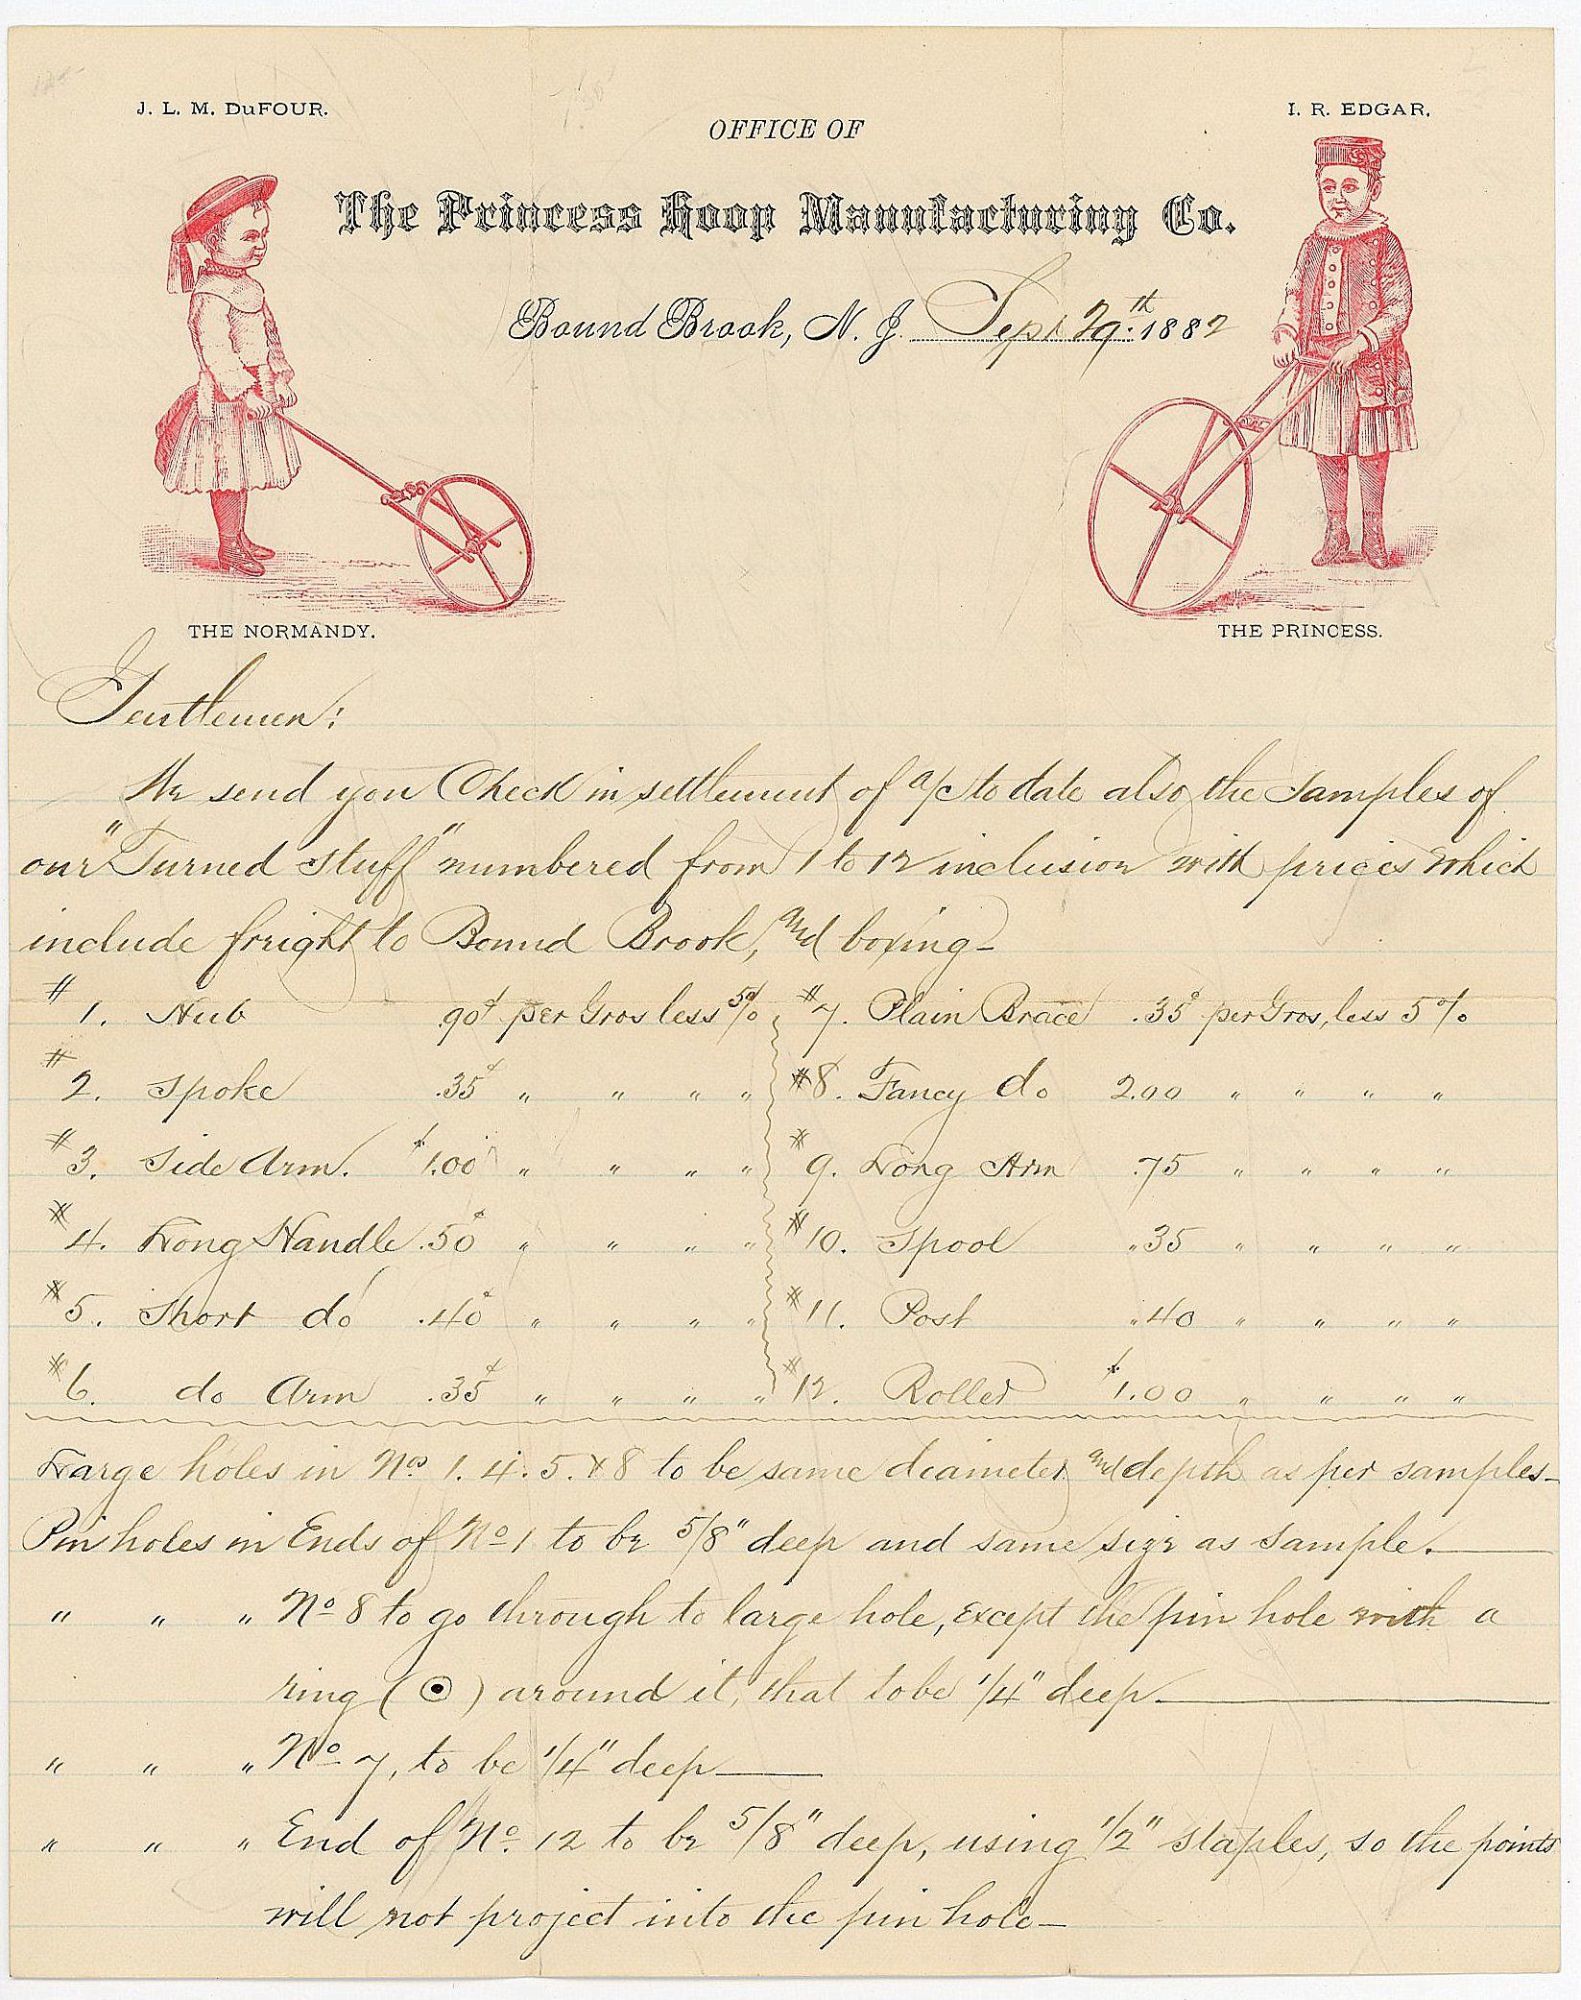 J. L. M. DuFOUR.
I. R. EDGAR.
OFFICE OF
The Princess Hoop Manufacturing Co.
Bound Brook, N. J. Sept 29th 1882
THE NORMANDY.
THE PRINCESS.
Gentlemen:
We send you Check in settlement of a/c to date also the samples of
our "Turned Stuff" numbered from 1 to 12 inclusion with prices which
include freight to Bound Brook, and boxing—
#1. Hub .90¢ per Gros less 5% #7. Plain Brace .35¢ per Gros, less 5%
#2. Spoke .35¢ " " " " #8. Fancy do 2.00 " " " "
#3. Side Arm. $1.00 " " " " #9. Long Arm .75 " " " "
#4. Long Handle .50¢ " " " " #10. Spool .35 " " " "
#5. Short do .40¢ " " " " #11. Post .40 " " " "
#6. do Arm .35¢ " " " " #12. Roller $1.00 " " " "
Large holes in Nos 1. 4. 5. & 8 to be same diameter and depth as per samples—
Pin holes in Ends of No 1 to be 5/8" deep and same size as sample.
" " " No 8 to go through to large hole, except the pin hole with a
ring (⊙) around it, that to be 1/4" deep.
" " " No 7, to be 1/4" deep
" " " End of No. 12 to be 5/8" deep, using 1/2" staples, so the points
will not project into the pin hole—